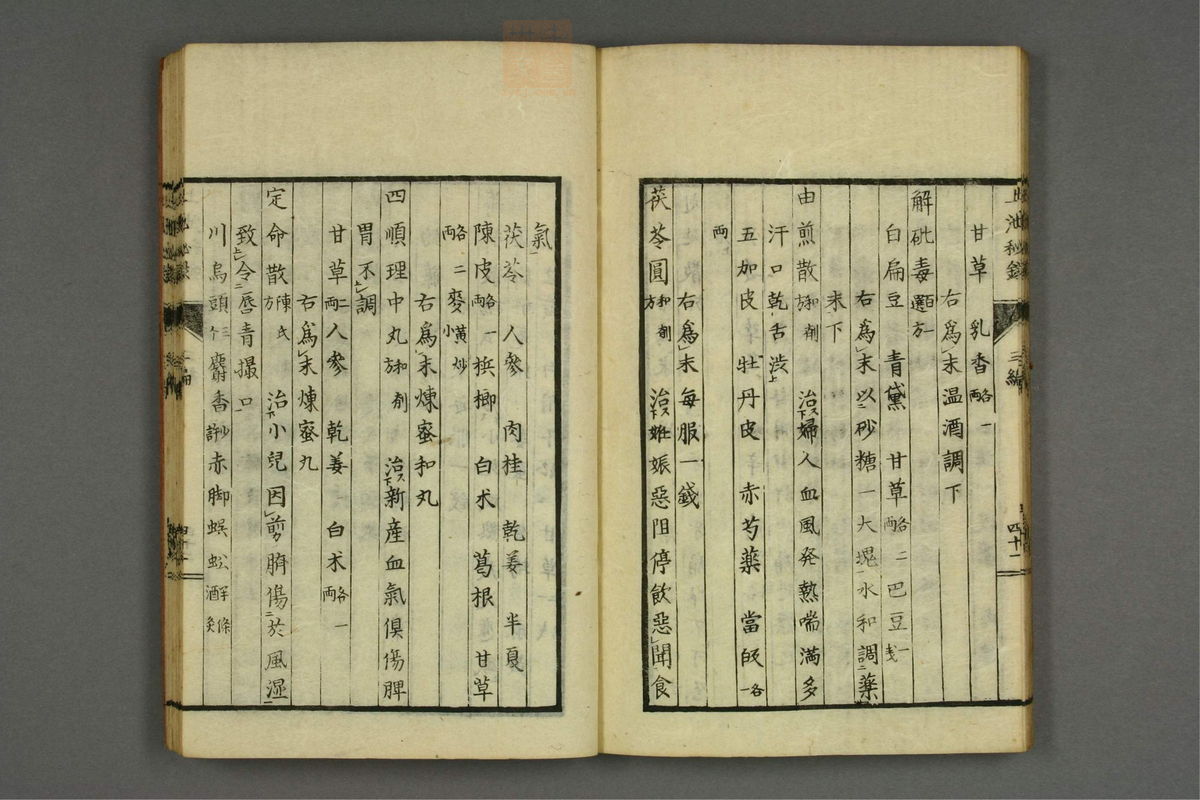 甘草 乳香各一両
右為末温酒調下
解砒毒選一方
白扁豆 青黛 甘草各二両 巴豆一銭
右為末以砂糖一大塊水和調薬
末下
由煎散和剤方 治婦人血風発熱喘満多
汗口乾舌渋
五加皮 牡丹皮 赤芍薬 當皈各一
両
右為末毎服一銭
茯苓圓和剤方 治妊娠惡阻停飲惡聞食
氣
茯苓 人參 肉桂 乾姜 半夏
陳皮各一両 梹榔 白朮 葛根 甘草
各二両 麥黄炒
右為末煉蜜和丸
四順理中丸和剤方 治新産血氣倶傷脾
胃不調
甘草二両 人參 乾姜 白朮各一両
右為末煉蜜丸
定命散陳氏方 治小兒因剪臍傷於風湿
致令唇青撮口
川烏頭 麝香少許 赤脚蜈蚣半條酒炙
三編
四十二